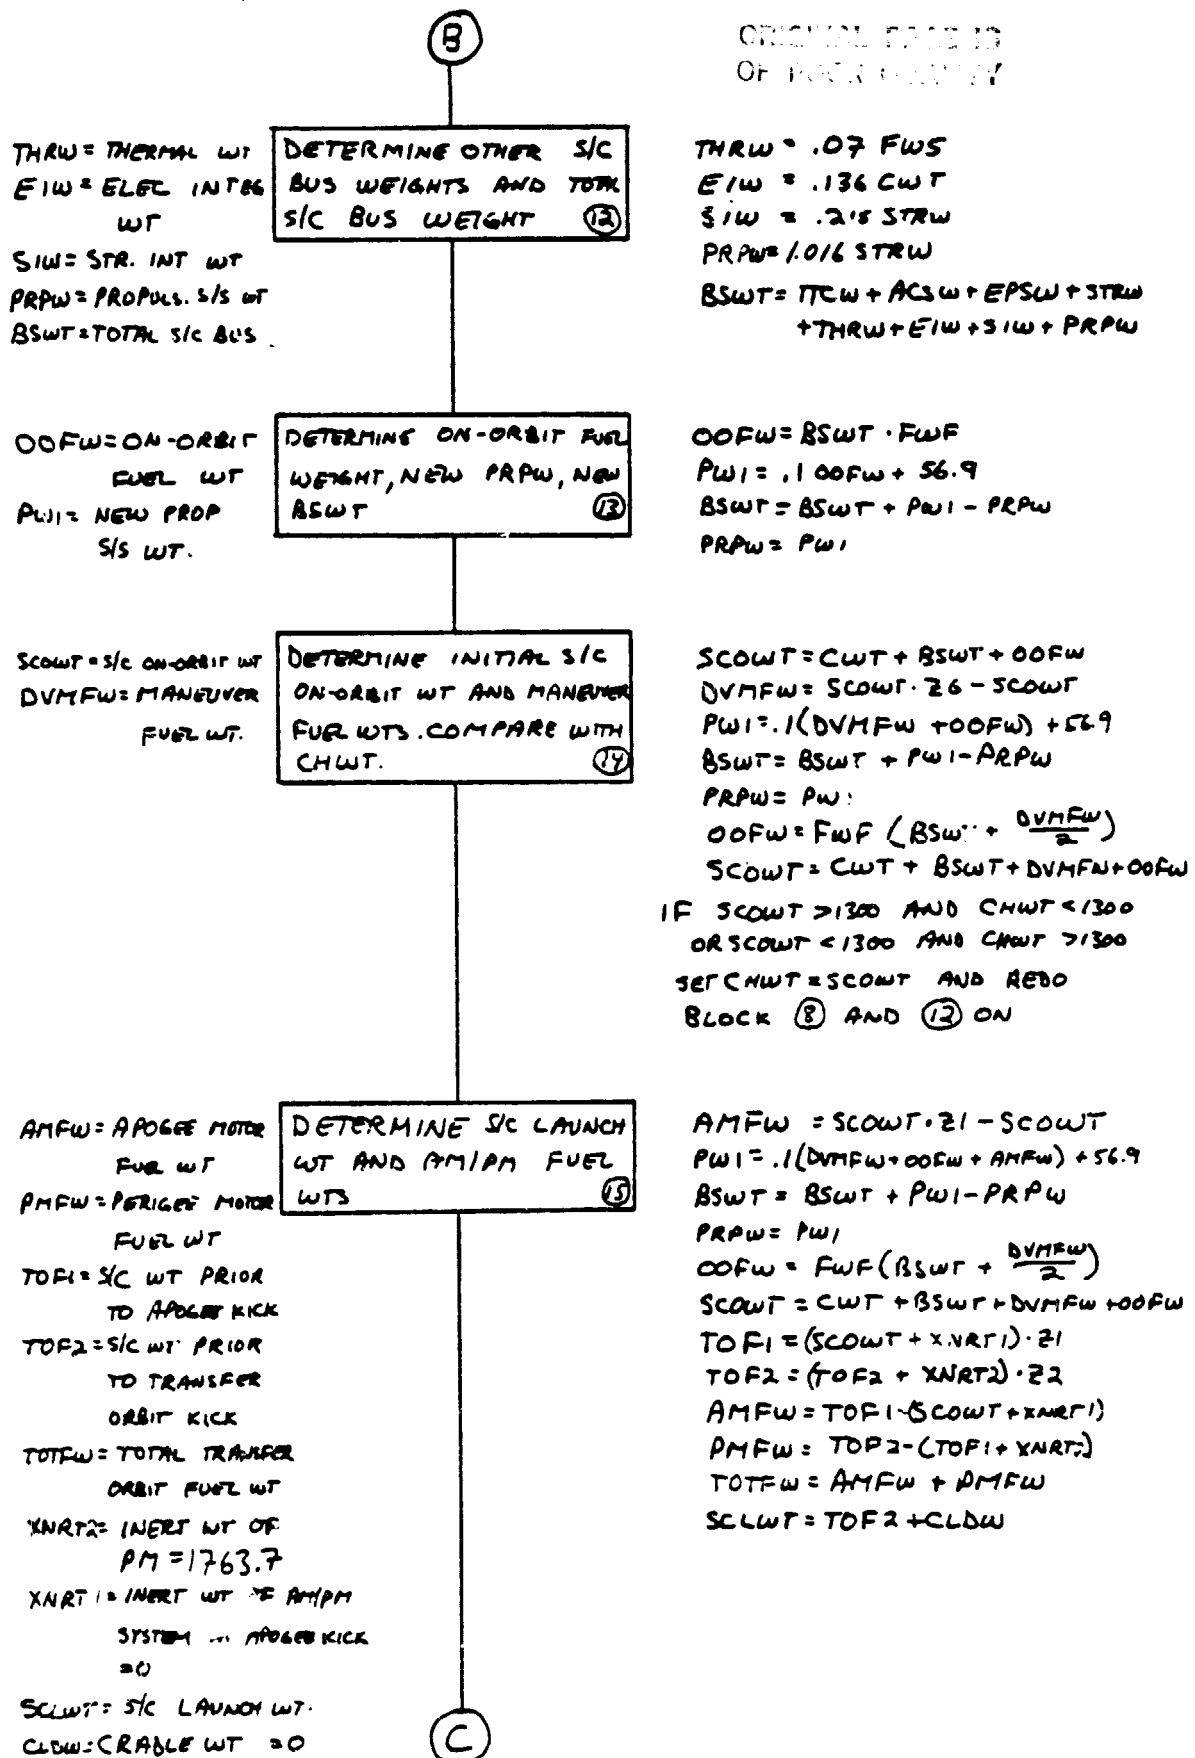 B
OF
THRW = THERMAL WT
EIW = ELEC INTEG
WT
SIW = STR. INT WT
PRPW = PROPULS. S/S WT
BSWT = TOTAL S/C BUS
DETERMINE OTHER S/C
BUS WEIGHTS AND TOTAL
S/C BUS WEIGHT 12
THRW = .07 FWS
EIW = .136 CWT
SIW = STRW
PRPW = 1.016 STRW
BSWT = TTCW + ACSW + EPSW + STRW
+ THRW + EIW + SIW + PRPW
OOFW = ON-ORBIT
FUEL WT
PW1 = NEW PROP
S/S WT.
DETERMINE ON-ORBIT FUEL
WEIGHT, NEW PRPW, NEW
BSWT 13
OOFW = BSWT · FWF
PW1 = .1 OOFW + 56.9
BSWT = BSWT + PW1 - PRPW
PRPW = PW1
SCOWT = S/C ON-ORBIT WT
DVMFW = MANEUVER
FUEL WT.
DETERMINE INITIAL S/C
ON-ORBIT WT AND MANEUVER
FUEL WTS. COMPARE WITH
CHWT. 14
SCOWT = CWT + BSWT + OOFW
DVMFW = SCOWT · Z6 - SCOWT
PW1 = .1(DVMFW + OOFW) + 56.9
BSWT = BSWT + PW1 - PRPW
PRPW =
OOFW = FWF ( + DVMFW/2)
SCOWT = CWT + BSWT + DVMFW + OOFW
IF SCOWT > 1300 AND CHWT < 1300
OR SCOWT < 1300 AND CHWT > 1300
SET CHWT = SCOWT AND REDO
BLOCK 8 AND 12 ON
AMFW = APOGEE MOTOR
FUEL WT
PMFW = PERIGEE MOTOR
FUEL WT
TOF1 = S/C WT PRIOR
TO APOGEE KICK
TOF2 = S/C WT PRIOR
TO TRANSFER
ORBIT KICK
TOTFW = TOTAL TRANSFER
ORBIT FUEL WT
XNRT2 = INERT WT OF
PM = 1763.7
XNRT1 = INERT WT AM/PM
SYSTEM APOGEE KICK
= 0
SCLWT = S/C LAUNCH WT.
CLDW = CRADLE WT = 0
DETERMINE S/C LAUNCH
WT AND AM/PM FUEL
WTS 15
AMFW = SCOWT · Z1 - SCOWT
PW1 = .1(DVMFW + OOFW + AMFW) + 56.9
BSWT = BSWT + PW1 - PRPW
PRPW = PW1
OOFW = FWF(BSWT + DVMFW/2)
SCOWT = CWT + BSWT + DVMFW + OOFW
TOF1 = (SCOWT + XNRT1) · Z1
TOF2 = (TOF2 + XNRT2) · Z2
AMFW = TOF1 - (SCOWT + XNRT1)
PMFW = TOF2 - (TOF1 + XNRT2)
TOTFW = AMFW + PMFW
SCLWT = TOF2 + CLDW
C